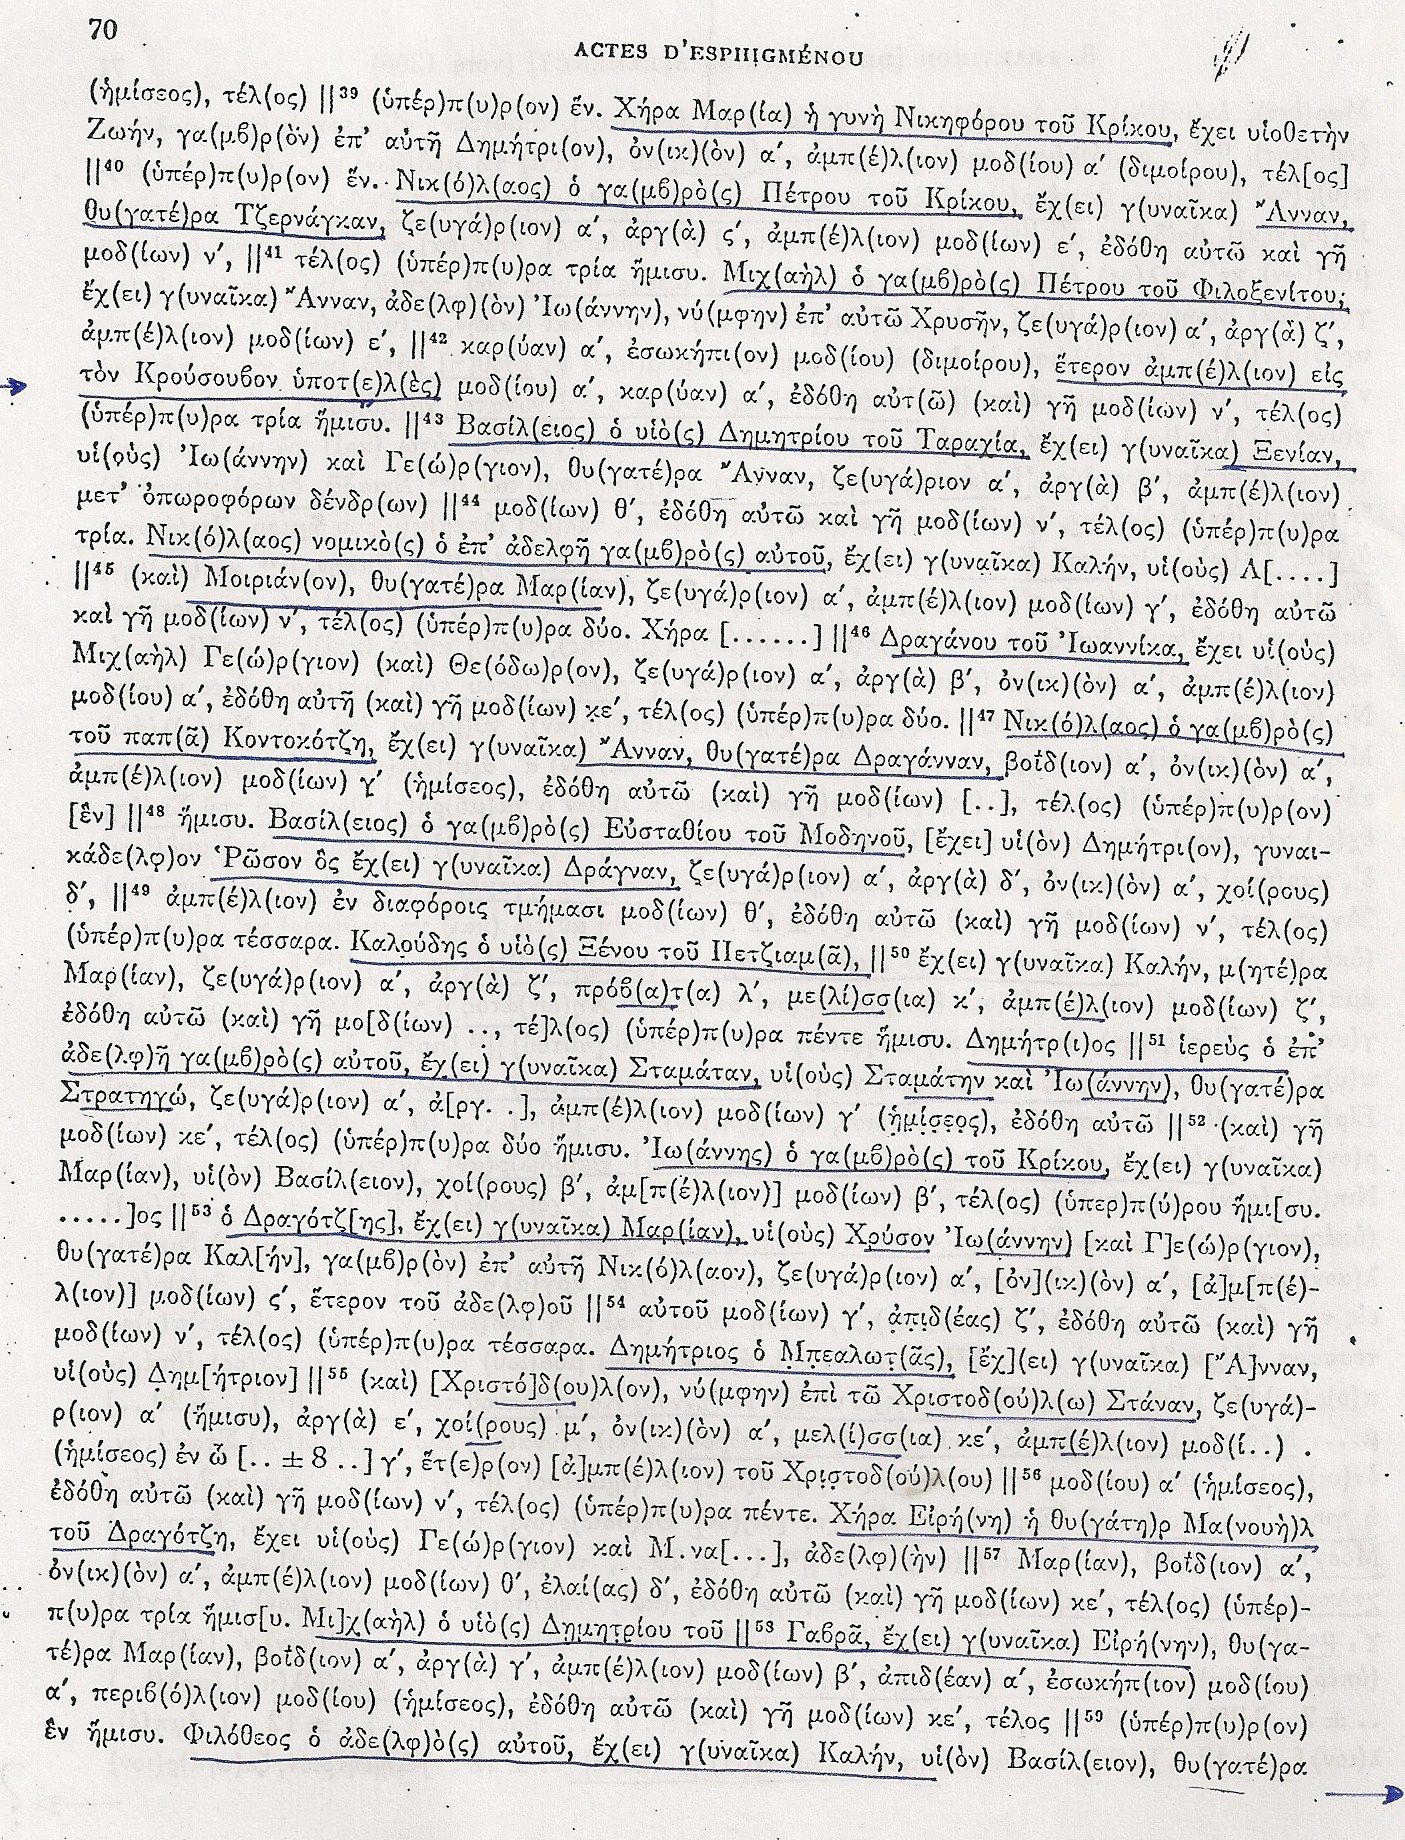 70
ACTES D'ESPHIGMÉNOU
(ἡμίσεος), τέλ(ος) ||³⁹ (ὑπέρ)π(υ)ρ(ον) ἕν. Χήρα Μαρ(ία) ἡ γυνὴ Νικηφόρου τοῦ Κρίκου, ἔχει υἱοθετὴν
Ζωήν, γα(μβ)ρ(ὸν) ἐπ' αὐτῇ Δημήτρι(ον), ὀν(ικ)(ὸν) α', ἀμπ(έ)λ(ιον) μοδ(ίου) α' (διμοίρου), τέλ[ος]
||⁴⁰ (ὑπέρ)π(υ)ρ(ον) ἕν. Νικ(ό)λ(αος) ὁ γα(μβ)ρὸ(ς) Πέτρου τοῦ Κρίκου, ἔχ(ει) γ(υναῖκα) Ἄνναν,
θυ(γατέ)ρα Τζερνάγκαν, ζε(υγά)ρ(ιον) α', ἀργ(ὰ) ς', ἀμπ(έ)λ(ιον) μοδ(ίων) ε', ἐδόθη αὐτῶ καὶ γῆ
μοδ(ίων) ν', ||⁴¹ τέλ(ος) (ὑπέρ)π(υ)ρα τρία ἥμισυ. Μιχ(αὴλ) ὁ γα(μβ)ρὸ(ς) Πέτρου τοῦ Φιλοξενίτου,
ἔχ(ει) γ(υναῖκα) Ἄνναν, ἀδε(λφ)(ὸν) Ἰω(άννην), νύ(μφην) ἐπ' αὐτῶ Χρυσῆν, ζε(υγά)ρ(ιον) α', ἀργ(ὰ) ζ',
ἀμπ(έ)λ(ιον) μοδ(ίων) ε', ||⁴² καρ(ύαν) α', ἐσωκήπι(ον) μοδ(ίου) (διμοίρου), ἕτερον ἀμπ(έ)λ(ιον) εἰς
τὸν Κρούσουβον ὑποτ(ε)λ(ὲς) μοδ(ίου) α', καρ(ύαν) α', ἐδόθη αὐτ(ῶ) (καὶ) γῆ μοδ(ίων) ν', τέλ(ος)
(ὑπέρ)π(υ)ρα τρία ἥμισυ. ||⁴³ Βασίλ(ειος) ὁ υἱὸ(ς) Δημητρίου τοῦ Ταραχία, ἔχ(ει) γ(υναῖκα) Ξενίαν,
υἱ(οὺς) Ἰω(άννην) καὶ Γε(ώ)ρ(γιον), θυ(γατέ)ρα Ἄνναν, ζε(υγά)ριον α', ἀργ(ὰ) β', ἀμπ(έ)λ(ιον)
μετ' ὀπωροφόρων δένδρ(ων) ||⁴⁴ μοδ(ίων) θ', ἐδόθη αὐτῶ καὶ γῆ μοδ(ίων) ν', τέλ(ος) (ὑπέρ)π(υ)ρα
τρία. Νικ(ό)λ(αος) νομικὸ(ς) ὁ ἐπ' ἀδελφῆ γα(μβ)ρὸ(ς) αὐτοῦ, ἔχ(ει) γ(υναῖκα) Καλήν, υἱ(οὺς) Λ[....]
||⁴⁵ (καὶ) Μοιριάν(ον), θυ(γατέ)ρα Μαρ(ίαν), ζε(υγά)ρ(ιον) α', ἀμπ(έ)λ(ιον) μοδ(ίων) γ', ἐδόθη αὐτῶ
καὶ γῆ μοδ(ίων) ν', τέλ(ος) (ὑπέρ)π(υ)ρα δύο. Χήρα [......] ||⁴⁶ Δραγάνου τοῦ Ἰωαννίκα, ἔχει υἱ(οὺς)
Μιχ(αὴλ) Γε(ώ)ρ(γιον) (καὶ) Θε(όδω)ρ(ον), ζε(υγά)ρ(ιον) α', ἀργ(ὰ) β', ὀν(ικ)(ὸν) α', ἀμπ(έ)λ(ιον)
μοδ(ίου) α', ἐδόθη αὐτῆ (καὶ) γῆ μοδ(ίων) κε', τέλ(ος) (ὑπέρ)π(υ)ρα δύο. ||⁴⁷ Νικ(ό)λ(αος) ὁ γα(μβ)ρὸ(ς)
τοῦ παπ(ᾶ) Κοντοκότζη, ἔχ(ει) γ(υναῖκα) Ἄνναν, θυ(γατέ)ρα Δραγάνναν, βοΐδ(ιον) α', ὀν(ικ)(ὸν) α',
ἀμπ(έ)λ(ιον) μοδ(ίων) γ' (ἡμίσεος), ἐδόθη αὐτῶ (καὶ) γῆ μοδ(ίων) [..], τέλ(ος) (ὑπέρ)π(υ)ρ(ον)
[ἓν] ||⁴⁸ ἥμισυ. Βασίλ(ειος) ὁ γα(μβ)ρὸ(ς) Εὐσταθίου τοῦ Μοδηνοῦ, [ἔχει] υἱ(ὸν) Δημήτρι(ον), γυναι-
κάδε(λφ)ον Ῥῶσον ὃς ἔχ(ει) γ(υναῖκα) Δράγναν, ζε(υγά)ρ(ιον) α', ἀργ(ὰ) δ', ὀν(ικ)(ὸν) α', χοί(ρους)
δ', ||⁴⁹ ἀμπ(έ)λ(ιον) ἐν διαφόροις τμήμασι μοδ(ίων) θ', ἐδόθη αὐτῶ (καὶ) γῆ μοδ(ίων) ν', τέλ(ος)
(ὑπέρ)π(υ)ρα τέσσαρα. Καλούδης ὁ υἱὸ(ς) Ξένου τοῦ Πετζιαμ(ᾶ), ||⁵⁰ ἔχ(ει) γ(υναῖκα) Καλήν, μ(ητέ)ρα
Μαρ(ίαν), ζε(υγά)ρ(ιον) α', ἀργ(ὰ) ζ', πρόβ(α)τ(α) λ', με(λί)σσ(ια) κ', ἀμπ(έ)λ(ιον) μοδ(ίων) ζ',
ἐδόθη αὐτῶ (καὶ) γῆ μο[δ(ίων) .., τέ]λ(ος) (ὑπέρ)π(υ)ρα πέντε ἥμισυ. Δημήτρ(ι)ος ||⁵¹ ἱερεὺς ὁ ἐπ'
ἀδε(λφ)ῆ γα(μβ)ρὸ(ς) αὐτοῦ, ἔχ(ει) γ(υναῖκα) Σταμάταν, υἱ(οὺς) Σταμάτην καὶ Ἰω(άννην), θυ(γατέ)ρα
Στρατηγώ, ζε(υγά)ρ(ιον) α', ἀ[ργ. .], ἀμπ(έ)λ(ιον) μοδ(ίων) γ' (ἡμίσεος), ἐδόθη αὐτῶ ||⁵² (καὶ) γῆ
μοδ(ίων) κε', τέλ(ος) (ὑπέρ)π(υ)ρα δύο ἥμισυ. Ἰω(άννης) ὁ γα(μβ)ρὸ(ς) τοῦ Κρίκου, ἔχ(ει) γ(υναῖκα)
Μαρ(ίαν), υἱ(ὸν) Βασίλ(ειον), χοί(ρους) β', ἀμ[π(έ)λ(ιον)] μοδ(ίων) β', τέλ(ος) (ὑπερ)π(ύ)ρου ἥμι[συ.
.....]ος ||⁵³ ὁ Δραγότζ[ης], ἔχ(ει) γ(υναῖκα) Μαρ(ίαν), υἱ(οὺς) Χρύσον Ἰω(άννην) [καὶ Γ]ε(ώ)ρ(γιον),
θυ(γατέ)ρα Καλ[ήν], γα(μβ)ρ(ὸν) ἐπ' αὐτῆ Νικ(ό)λ(αον), ζε(υγά)ρ(ιον) α', [ὀν](ικ)(ὸν) α', [ἀ]μ[π(έ)-
λ(ιον)] μοδ(ίων) ς', ἕτερον τοῦ ἀδε(λφ)οῦ ||⁵⁴ αὐτοῦ μοδ(ίων) γ', ἀπιδ(έας) ζ', ἐδόθη αὐτῶ (καὶ) γῆ
μοδ(ίων) ν', τέλ(ος) (ὑπέρ)π(υ)ρα τέσσαρα. Δημήτριος ὁ Μπεαλωτ(ᾶς), [ἔχ](ει) γ(υναῖκα) [Ἄ]νναν,
υἱ(οὺς) Δημ[ήτριον] ||⁵⁵ (καὶ) [Χριστό]δ(ου)λ(ον), νύ(μφην) ἐπὶ τῶ Χριστοδ(ού)λ(ω) Στάναν, ζε(υγά)-
ρ(ιον) α' (ἥμισυ), ἀργ(ὰ) ε', χοί(ρους) μ', ὀν(ικ)(ὸν) α', μελ(ί)σσ(ια) κε', ἀμπ(έ)λ(ιον) μοδ(ί..) .
(ἡμίσεος) ἐν ὧ [.. ± 8 ..] γ', ἕτ(ε)ρ(ον) [ἀ]μπ(έ)λ(ιον) τοῦ Χριστοδ(ού)λ(ου) ||⁵⁶ μοδ(ίου) α' (ἡμίσεος),
ἐδόθη αὐτῶ (καὶ) γῆ μοδ(ίων) ν', τέλ(ος) (ὑπέρ)π(υ)ρα πέντε. Χήρα Εἰρή(νη) ἡ θυ(γάτη)ρ Μα(νουὴ)λ
τοῦ Δραγότζη, ἔχει υἱ(οὺς) Γε(ώ)ρ(γιον) καὶ Μ.να[...], ἀδε(λφ)(ὴν) ||⁵⁷ Μαρ(ίαν), βοΐδ(ιον) α',
ὀν(ικ)(ὸν) α', ἀμπ(έ)λ(ιον) μοδ(ίων) θ', ἐλαί(ας) δ', ἐδόθη αὐτῶ (καὶ) γῆ μοδ(ίων) κε', τέλ(ος) (ὑπέρ)-
π(υ)ρα τρία ἥμισ[υ. Μι]χ(αὴλ) ὁ υἱὸ(ς) Δημητρίου τοῦ ||⁵³ Γαβρᾶ, ἔχ(ει) γ(υναῖκα) Εἰρή(νην), θυ(γα-
τέ)ρα Μαρ(ίαν), βοΐδ(ιον) α', ἀργ(ὰ) γ', ἀμπ(έ)λ(ιον) μοδ(ίων) β', ἀπιδ(έαν) α', ἐσωκήπ(ιον) μοδ(ίου)
α', περιβ(ό)λ(ιον) μοδ(ίου) (ἡμίσεος), ἐδόθη αὐτῶ (καὶ) γῆ μοδ(ίων) κε', τέλος ||⁵⁹ (ὑπέρ)π(υ)ρ(ον)
ἓν ἥμισυ. Φιλόθεος ὁ ἀδε(λφ)ὸ(ς) αὐτοῦ, ἔχ(ει) γ(υναῖκα) Καλήν, υἱ(ὸν) Βασίλ(ειον), θυ(γατέ)ρα